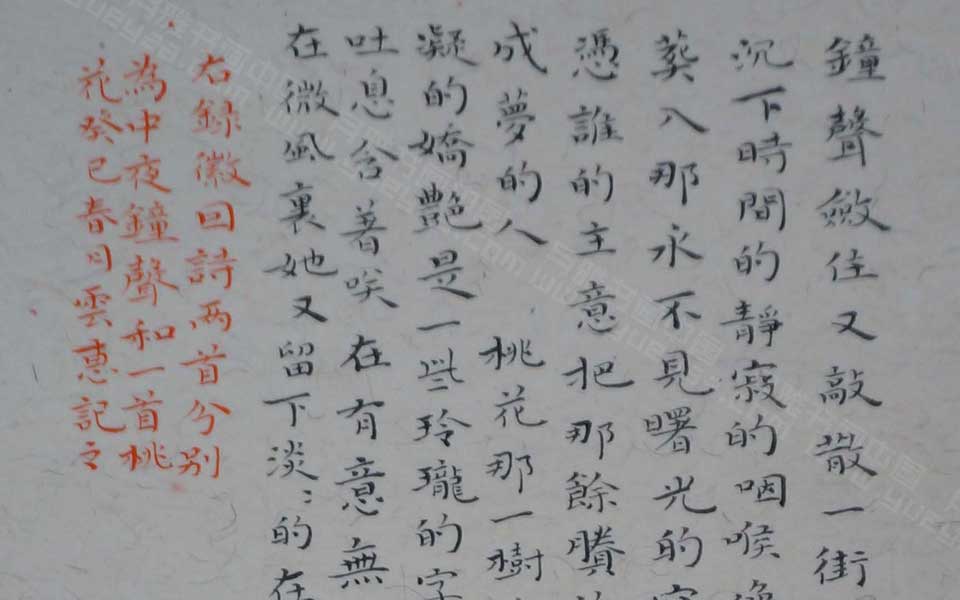 鐘聲斂住又敲散一街
沉下時間的靜寂的咽喉
葬入那永不見曙光的
憑誰的主意把那餘賸
成夢的人 桃花那一樹
凝的嬌艷是一些玲瓏的字
吐息含著笑在有意無
在微風裏她又留下淡〻的在
右錄徽回詩兩首分別
為中夜鐘聲和一首桃
花癸巳春日雲惠記之